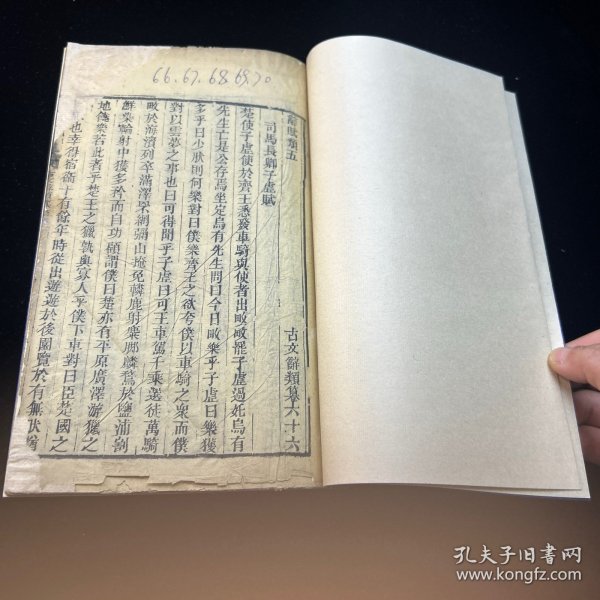 66.67.68.69.70
辭賦類五
古文辭類纂六十六
司馬長卿子虛賦
楚使子虛使於齊王悉發車騎與使者出畋畋罷子虛過奼烏有
先生亡是公存焉坐定烏有先生問曰今日畋樂乎子虛曰樂獲
多乎曰少然則何樂對曰僕樂齊王之欲夸僕以車騎之衆而僕
對以雲夢之事也曰可得聞乎子虛曰可王車駕千乘選徒萬騎
畋於海濱列卒滿澤罘網彌山掩兔轔鹿射麋腳麟騖於鹽浦割
鮮染輪射中獲多矜而自功顧謂僕曰楚亦有平原廣澤游獵之
地饒樂若此者乎楚王之獵孰與寡人乎僕下車對曰臣楚國之
也幸得宿衛十有餘年時從出遊遊於後園覽於有無然猶
孔夫子旧书网
www.kongfz.com